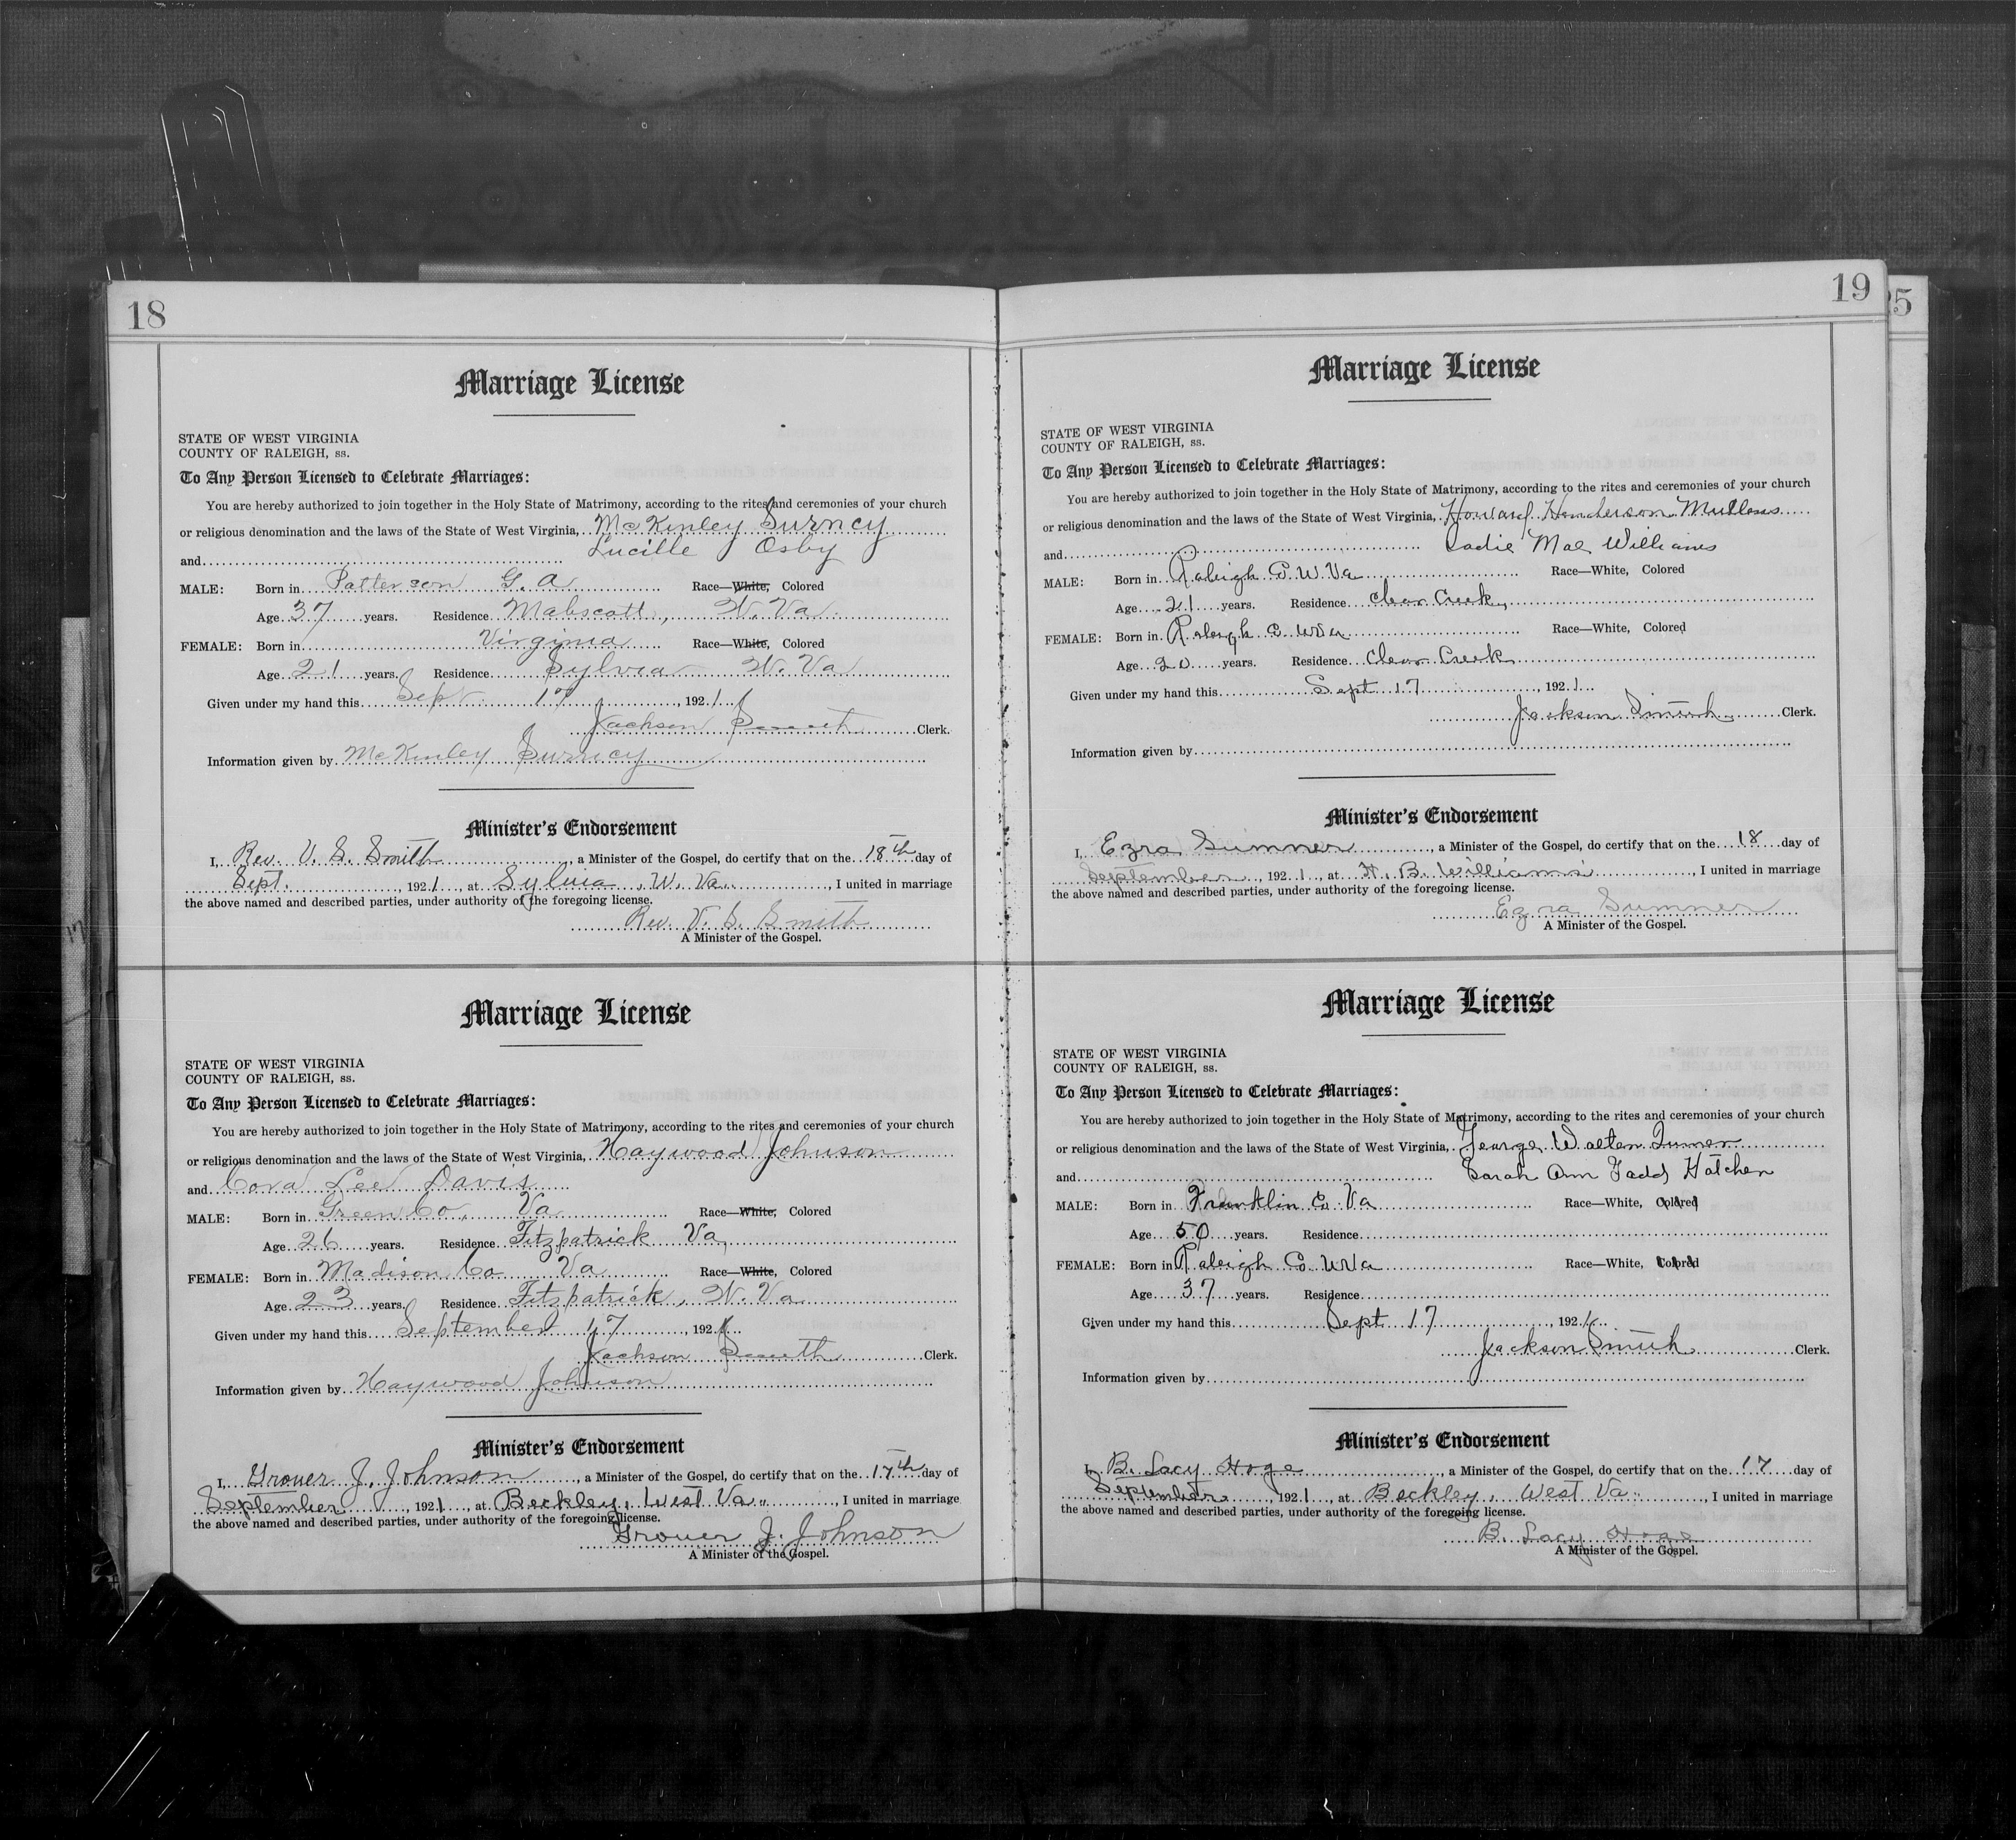 18
Marriage License
STATE OF WEST VIRGINIA
COUNTY OF RALEIGH, ss.
To Any Person Licensed to Celebrate Marriages:
You are hereby authorized to join together in the Holy State of Matrimony, according to the rites and ceremonies of your church
or religious denomination and the laws of the State of West Virginia, McKinley Surncy
and Lucille Osby
MALE: Born in Patterson G.A Race—White, Colored
Age 37 years. Residence Mabscott, W. Va
FEMALE: Born in Virginia Race—White, Colored
Age 21 years. Residence Sylvia W. Va
Given under my hand this Sept 17, 1921
Jackson Smith Clerk.
Information given by McKinley Surncy
Minister's Endorsement
I, Rev. V. S. Smith, a Minister of the Gospel, do certify that on the 18th day of
Sept., 1921, at Sylvia, W. Va., I united in marriage
the above named and described parties, under authority of the foregoing license.
Rev. V. S. Smith
A Minister of the Gospel.
Marriage License
STATE OF WEST VIRGINIA
COUNTY OF RALEIGH, ss.
To Any Person Licensed to Celebrate Marriages:
You are hereby authorized to join together in the Holy State of Matrimony, according to the rites and ceremonies of your church
or religious denomination and the laws of the State of West Virginia, Haywood Johnson
and Cora Lee Davis
MALE: Born in Green Co, Va Race—White, Colored
Age 26 years. Residence Fitzpatrick Va,
FEMALE: Born in Madison Co Va Race—White, Colored
Age 23 years. Residence Fitzpatrick, W. Va
Given under my hand this September 17, 1921
Jackson Smith Clerk.
Information given by Haywood Johnson
Minister's Endorsement
I, Grover J. Johnson, a Minister of the Gospel, do certify that on the 17th day of
September, 1921, at Beckley, West Va., I united in marriage
the above named and described parties, under authority of the foregoing license.
Grover J. Johnson
A Minister of the Gospel.
19
Marriage License
STATE OF WEST VIRGINIA
COUNTY OF RALEIGH, ss.
To Any Person Licensed to Celebrate Marriages:
You are hereby authorized to join together in the Holy State of Matrimony, according to the rites and ceremonies of your church
or religious denomination and the laws of the State of West Virginia, Howard Henderson Mullens
and Sadie Mae Williams
MALE: Born in Raleigh Co W Va Race—White, Colored
Age 21 years. Residence Clear Creek,
FEMALE: Born in Raleigh Co W Va Race—White, Colored
Age 20 years. Residence Clear Creek
Given under my hand this Sept 17, 1921
Jackson Smith Clerk.
Information given by
Minister's Endorsement
I, Ezra Sumner, a Minister of the Gospel, do certify that on the 18 day of
September, 1921, at H. B. Williams, I united in marriage
the above named and described parties, under authority of the foregoing license.
Ezra Sumner
A Minister of the Gospel.
Marriage License
STATE OF WEST VIRGINIA
COUNTY OF RALEIGH, ss.
To Any Person Licensed to Celebrate Marriages:
You are hereby authorized to join together in the Holy State of Matrimony, according to the rites and ceremonies of your church
or religious denomination and the laws of the State of West Virginia, George Walter Turner
and Sarah Ann Hatcher
MALE: Born in Franklin Co Va Race—White, Colored
Age 50 years. Residence
FEMALE: Born in Raleigh Co W Va Race—White, Colored
Age 37 years. Residence
Given under my hand this Sept 17, 1921
Jackson Smith Clerk.
Information given by
Minister's Endorsement
I, B. Lacy Hoge, a Minister of the Gospel, do certify that on the 17 day of
September, 1921, at Beckley, West Va., I united in marriage
the above named and described parties, under authority of the foregoing license.
B. Lacy Hoge
A Minister of the Gospel.